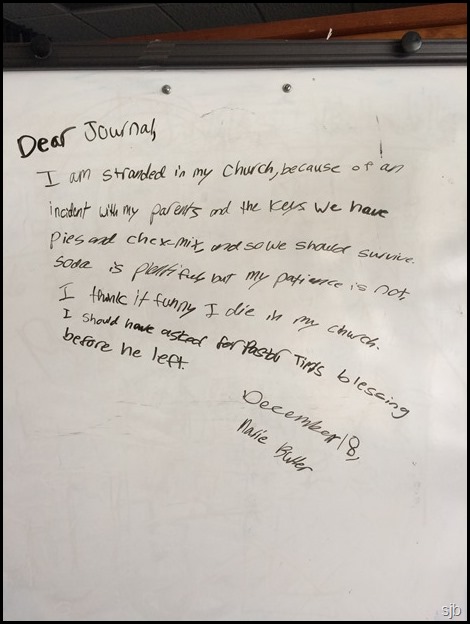 Dear Journal,
I am stranded in my church, because of an
incident with my parents and the keys we have
pies and chex-mix, and so we should survive.
soda is plentiful but my patience is not,
I think it funny I die in my church.
I should have asked for Pastor Tim's blessing
before he left.
December 18,
Marie Butler
sjb